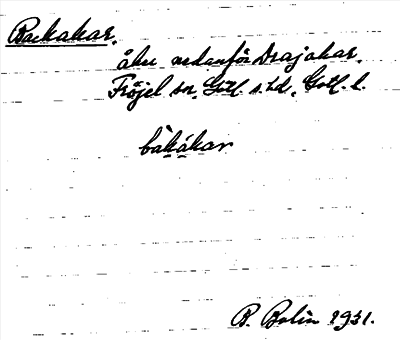 Backakar.
åker nedanför Drajakar.
Fröjel sn, Gotl. s. hd, Gotl. l.
bàkákar
B. Bolin 1931.